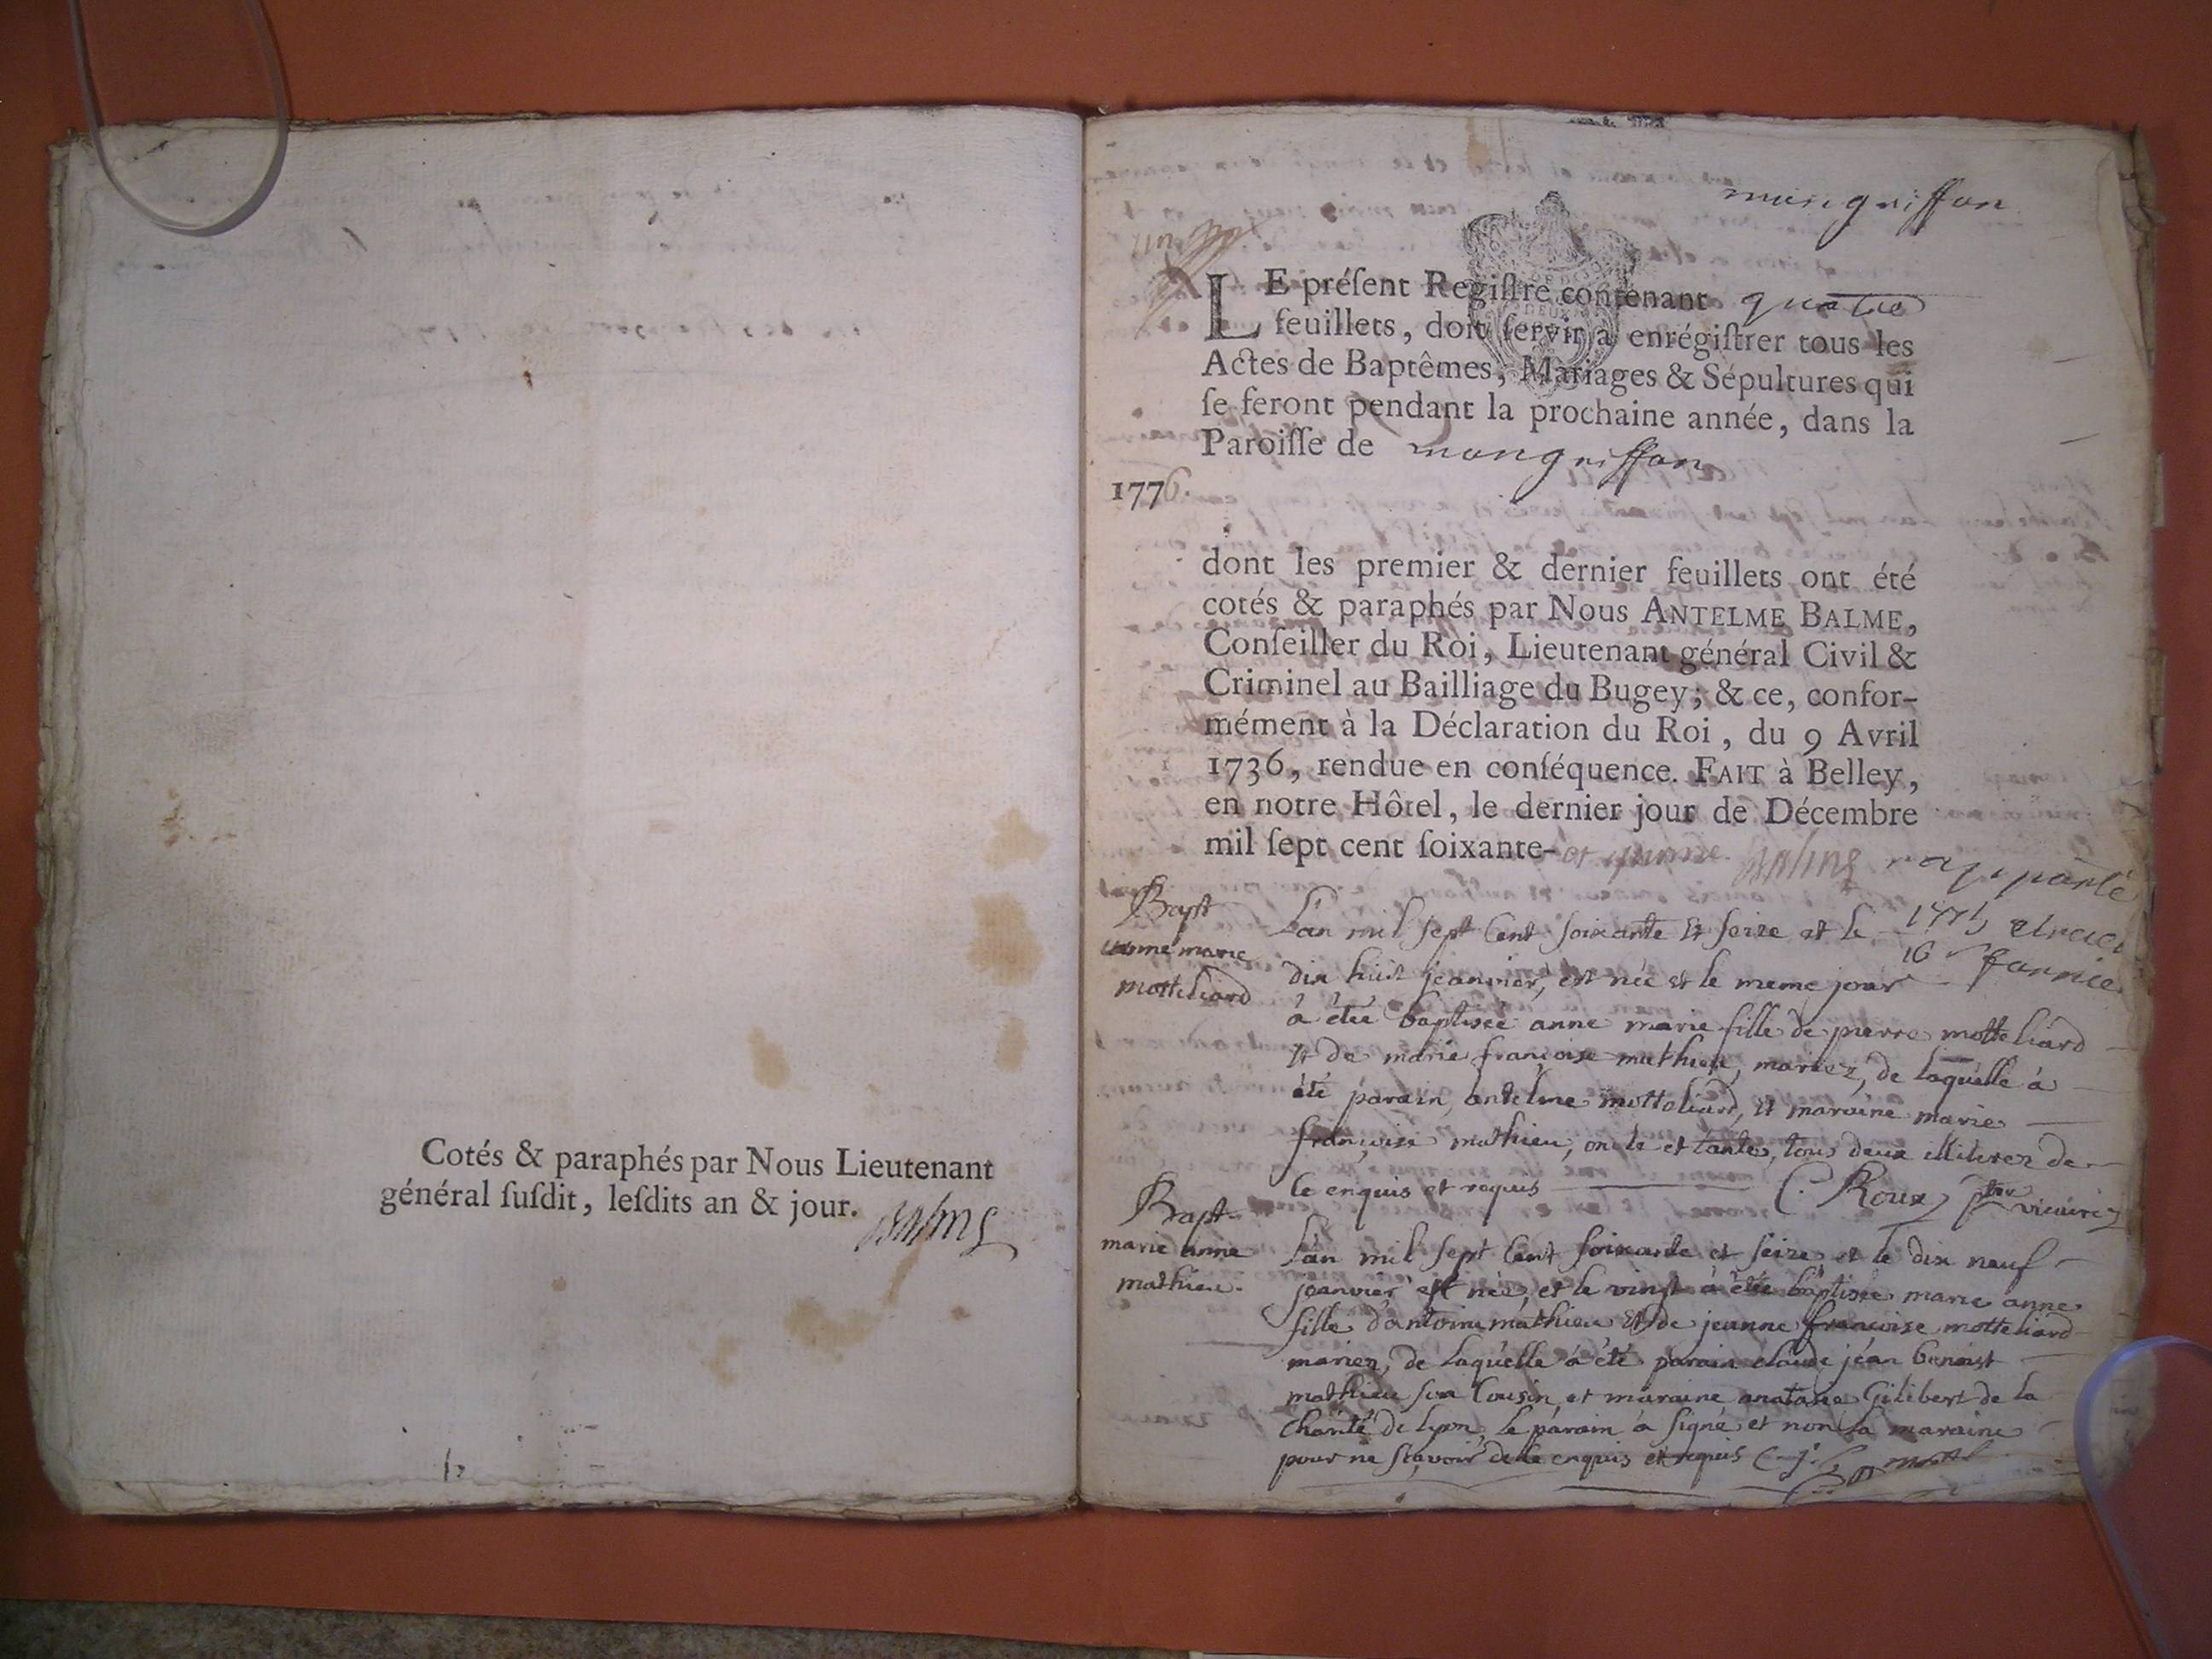 Cotés & paraphés par Nous Lieutenant
général ſuſdit, leſdits an & jour.
Balme
mongriffon
LE préſent Regiſtre contenant quatre
feuillets, doit ſervir à enrégiſtrer tous les
Actes de Baptêmes, Mariages & Sépultures qui
ſe feront pendant la prochaine année, dans la
Paroiſſe de mongriffon
1776.
dont les premier & dernier feuillets ont été
cotés & paraphés par Nous ANTELME BALME,
Conſeiller du Roi, Lieutenant général Civil &
Criminel au Bailliage du Bugey; & ce, confor-
mément à la Déclaration du Roi, du 9 Avril
1736, rendue en conſéquence. FAIT à Belley,
en notre Hôtel, le dernier jour de Décembre
mil ſept cent ſoixante-et quinze. Balme
Bapt
anne marie
motteliard
L'an mil sept cent soixante et seize et le
dix huit jeanvier, est née et le meme jour
à étée baptisée anne marie fille de pierre motteliard
et de marie françoise mathieu, mariez, de laquelle à
été parain antelme motteliard, et maraine marie
françoise mathieu, oncle et tante, tous deux illiterez de
ce enquis et requis C. Roux ptre vicaire
Bapt
marie anne
mathieu.
L'an mil sept cent soixante et seize et le dix neuf
jeanvier est née, et le vingt à étée baptisée marie anne
fille d'antoine mathieu et de jeanne françoise motteliard
mariez, de laquelle à été parain claude jéan benoist
mathieu son cousin et maraine anatasie Gilibert de la
charité de lyon, le parain à signé et non la maraine
pour ne sçavoir de ce enquis et requis